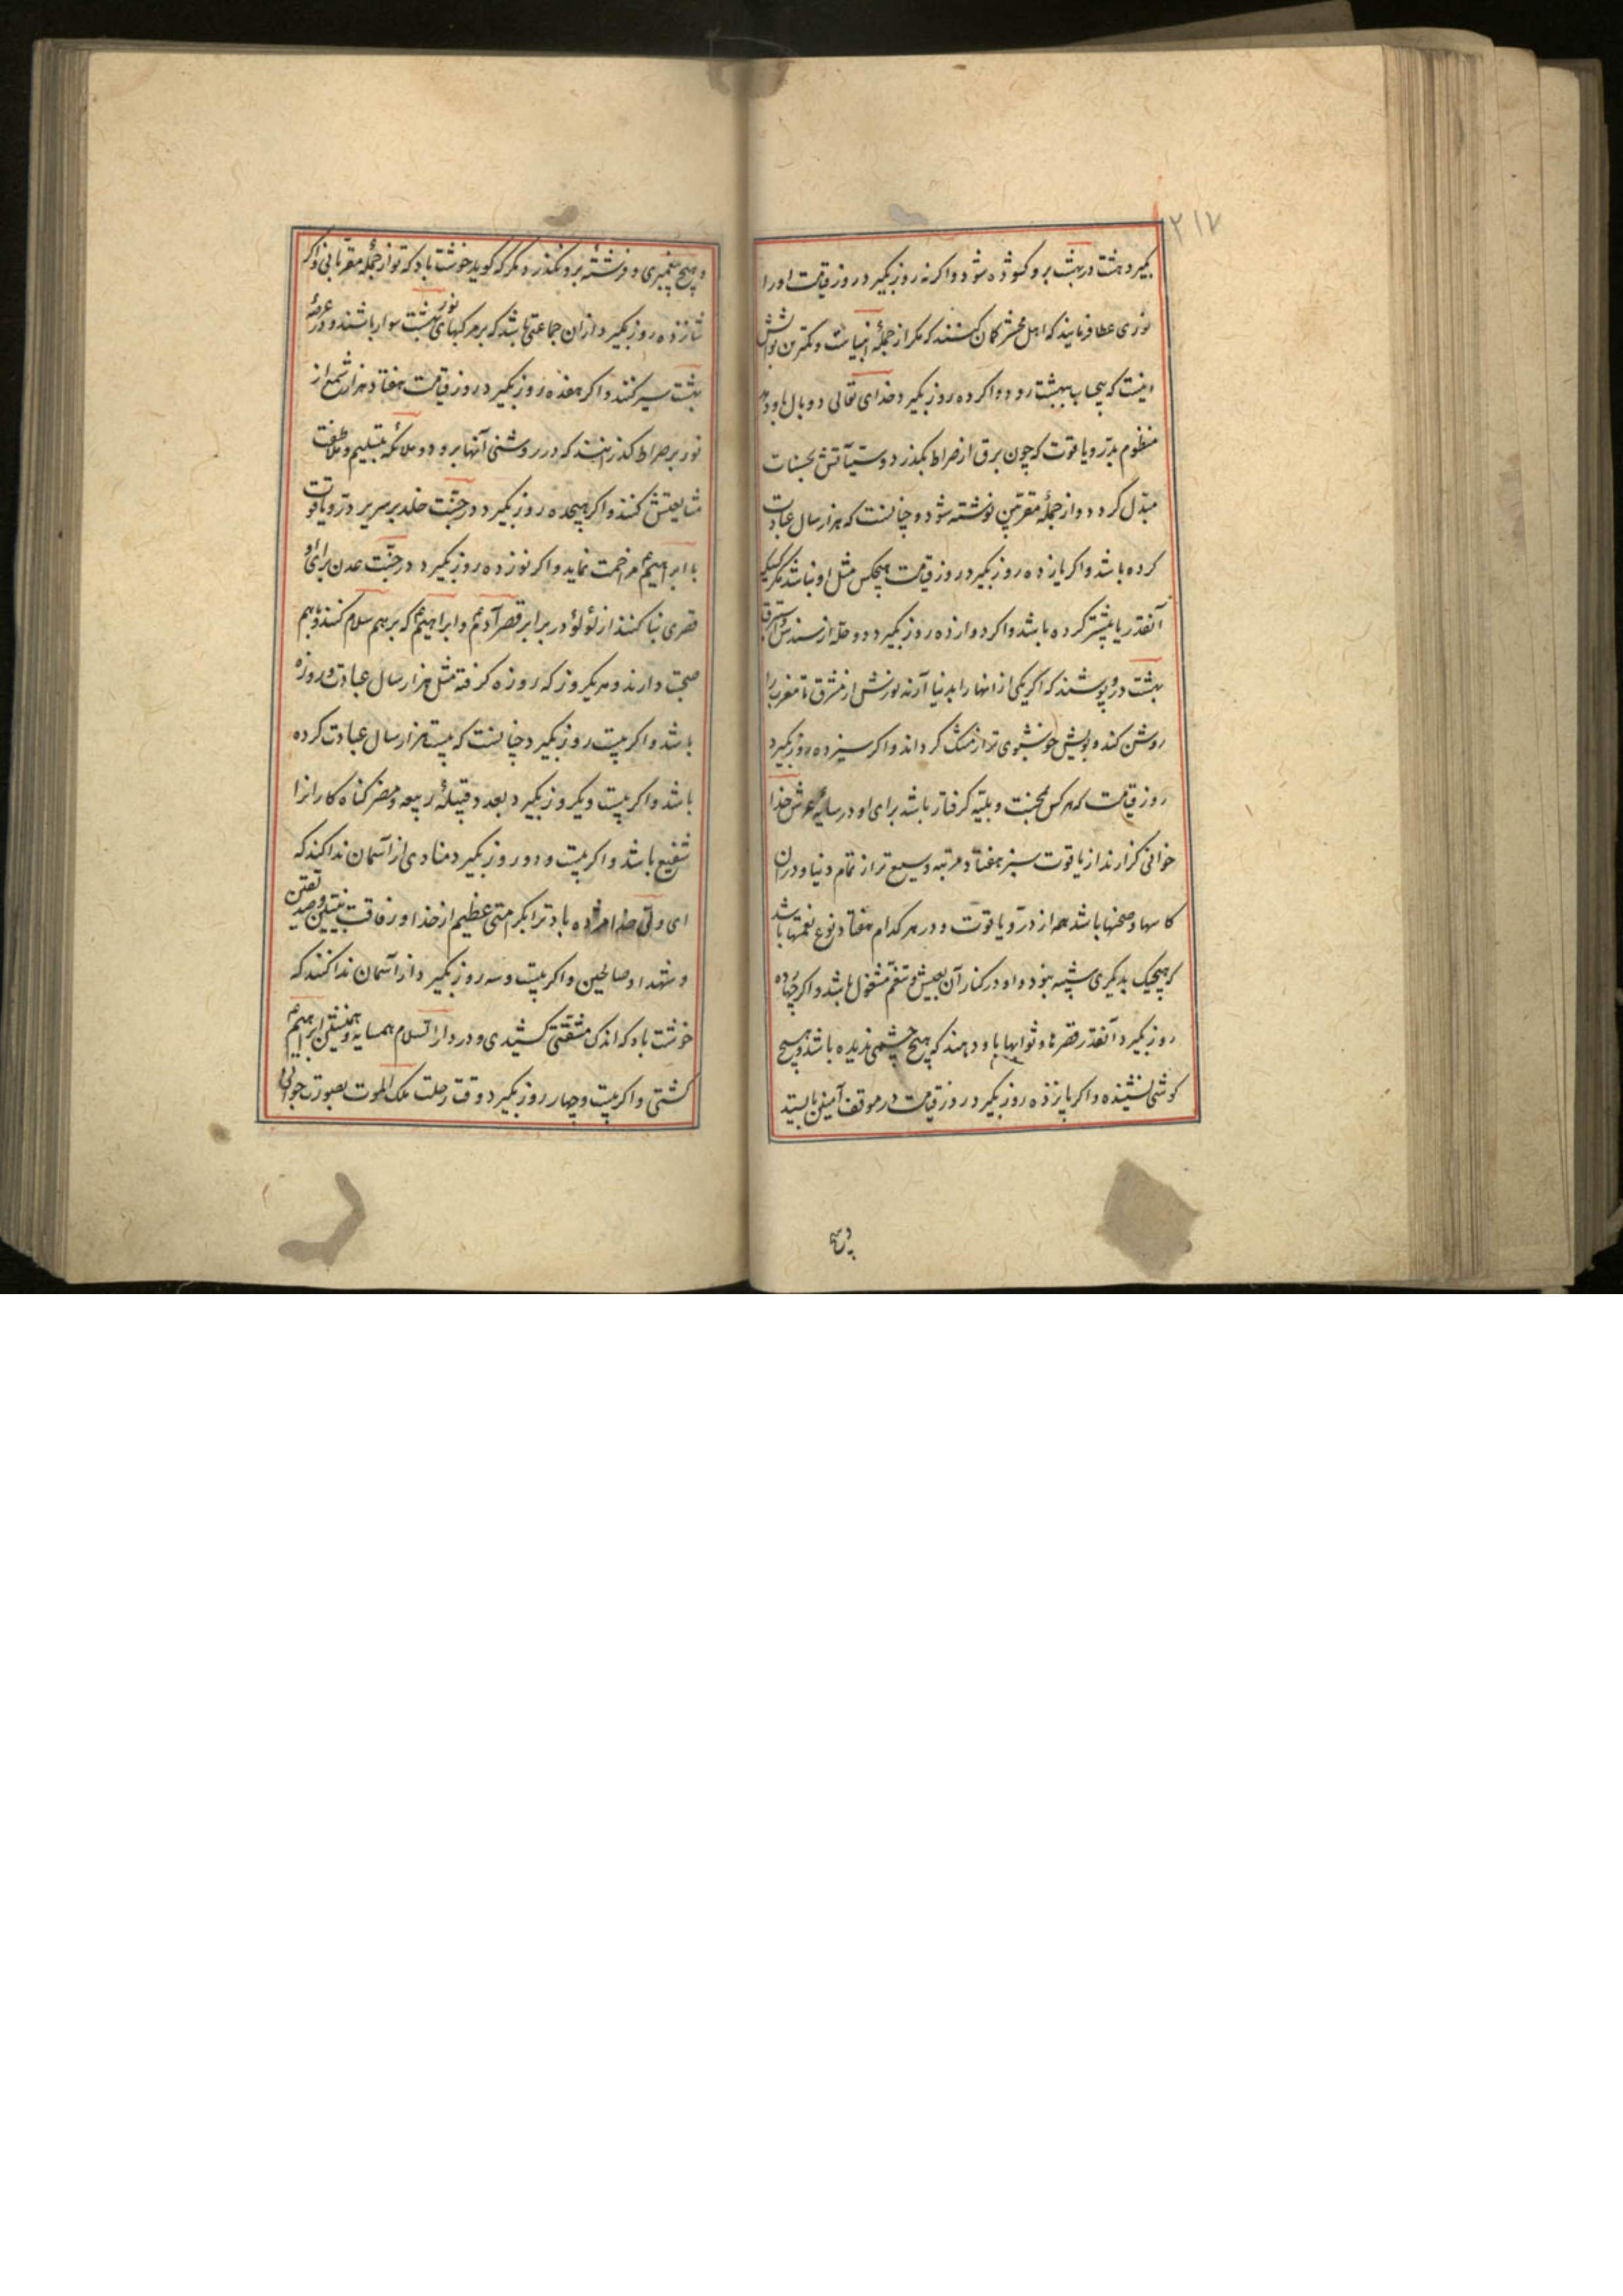 ۲۱۷
بگیرد هشت در بهشت برو کشوده شود و اکر نه روز بگیرد روز قیامت اورا
نوری عطا فرمایند که اهل محشر کمان کنند که مکر از جملهٔ انبیاست و کمترین ثوابش
اینست که بیحساب ببهشت رود و اکر ده روز بگیرد خدای تعالی دو بال باو دهد
منظوم بدر و یاقوت که چون برق از صراط بگذرد و سیآتش بحسنات
مبدل کردد و از جملهٔ مقربین نوشته شود و چنانست که هزار سال عبادت
کرده باشد و اکر یازده روز بگیرد روز قیامت هیچکس مثل او نباشد مکر کسیکه
آنقدر یا بیشتر کرده باشد و اکر دوازده روز بگیرد دو حله از سندس و استبرق
بهشت درو پوشند که اکر یکی از انها را بدنیا آرند نورش از مشرق تا مغرب را
روشن کند و بویش خوشبوی تر از مشک کرداند و اکر سیزده روز بگیرد
روز قیامت که هر کس بمحنت و بلیه کرفتار باشد برای او در سایهٔ عرش خدا
خوانی کزارند از یاقوت سبز هفتاد مرتبه وسیع تر از تمام دنیا و در ان
کاسها و صحنها باشد همه از در و یاقوت و در هر کدام هفتاد نوع نعمتها باشد
که هیچیک بدیکری شبیه نبود و او در کنار آن بعیش و تنعم مشغول باشد و اکر چهارده
روز بگیرد آنقدر قصرها و ثوابها باو دهند که هیچ چشمی ندیده باشد و هیچ
کوشی نشنیده و اکر پانزده روز بگیرد روز قیامت در موقف آمنین بایستد
و هیچ پیغمبری و فرشتهٔ برو نگذرد مکر که کوید خوشت باد که تو از جملهٔ مقربانی و اکر
شانزده روز بگیرد از ان جماعتی باشد که بر مرکبهای نور بهشت سوار باشند و در عرصهٔ
بهشت سیر کنند و اکر هفده روز بگیرد روز قیامت هفتاد هزار شمع از
نور بر صراط کذرانند که در روشنی آنها برود و ملائکه بتسلیم و ملاطفت
مشایعتش کنند و اکر هیجده روز بگیرد در جنت خلد بر سریر در و یاقوت
با ابراهیم ع مزاحمت نماید و اکر نوزده روز بگیرد در جنت عدن برای او
قصری بنا کنند از لؤلؤ در برابر قصر آدم ع و ابراهیم ع که بر هم سلام کنند و با هم
صحبت دارند و هر یکروز که روزه کرفته مثل هزار سال عبادت و روزه
باشد و اکر بیست روز بگیرد چنانست که بیست هزار سال عبادت کرده
باشد و اکر بیست و یکروز بگیرد بعدد قبیلهٔ ربیعه و مضر کناه کارانرا
شفیع باشد و اکر بیست و دو روز بگیرد منادی از آسمان ندا کند که
ای ولی خدا مژده باد ترا بکرامتی عظیم از خدا و رفاقت نبیین و صدیقین
و شهدا و صالحین و اکر بیست و سه روز بگیرد از آسمان ندا کنند که
خوشت باد که اندک مشقتی کشیدی و در دار السلام همسایه و همنشین ابراهیم ع
کشتی و اکر بیست و چهار روز بگیرد وقت رحلت ملک الموت بصورت جوانی